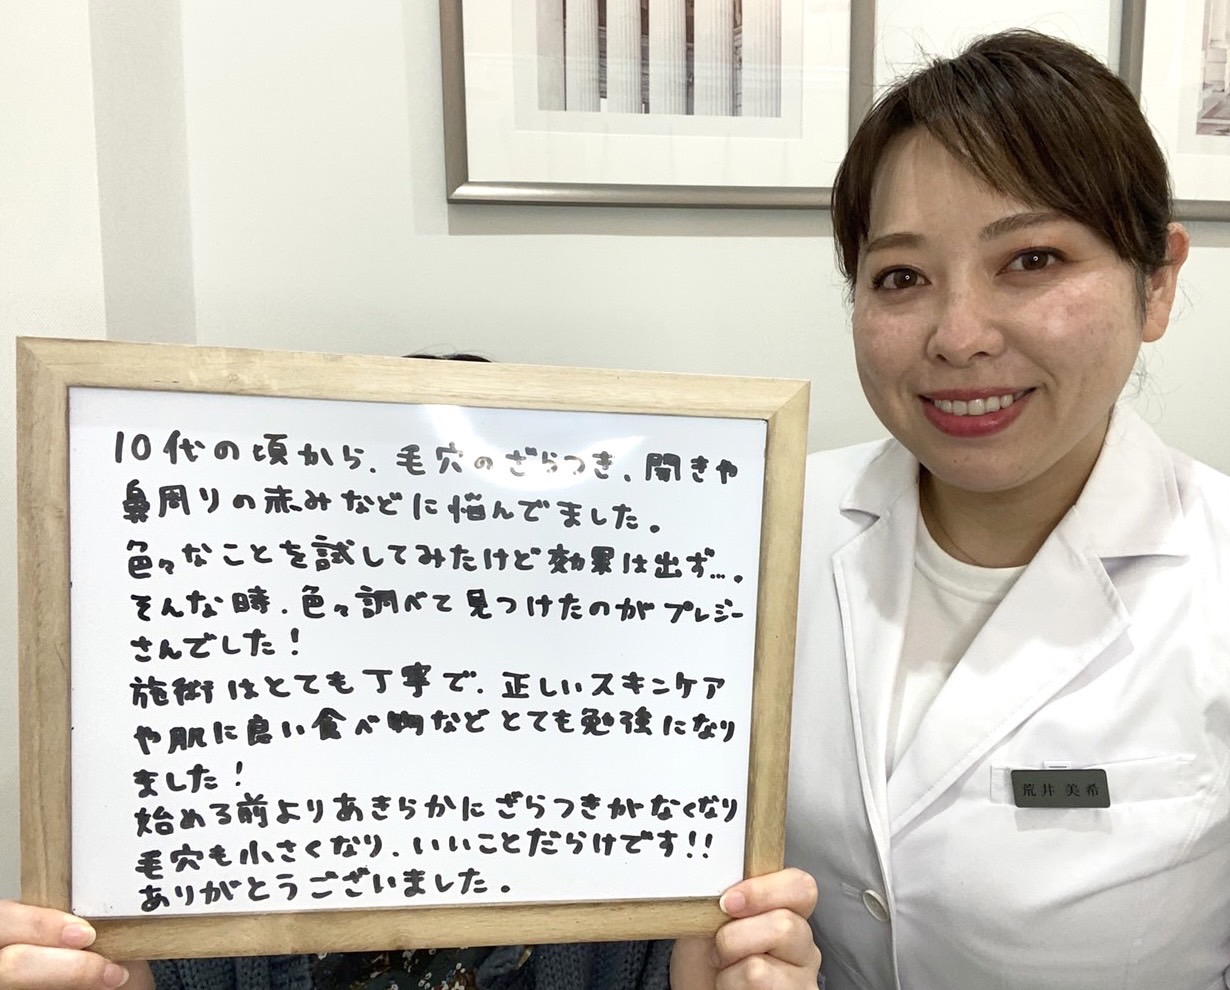 10代の頃から、毛穴のざらつき、開きや
鼻周りの赤みなどに悩んでました。
色々なことを試してみたけど効果は出ず…。
そんな時、色々調べて見つけたのがプレジー
さんでした！
施術はとても丁寧で、正しいスキンケア
や肌に良い食べ物などとても勉強になり
ました！
始める前よりあきらかにざらつきがなくなり
毛穴も小さくなり、いいことだらけです!!
ありがとうございました。
荒井 美希